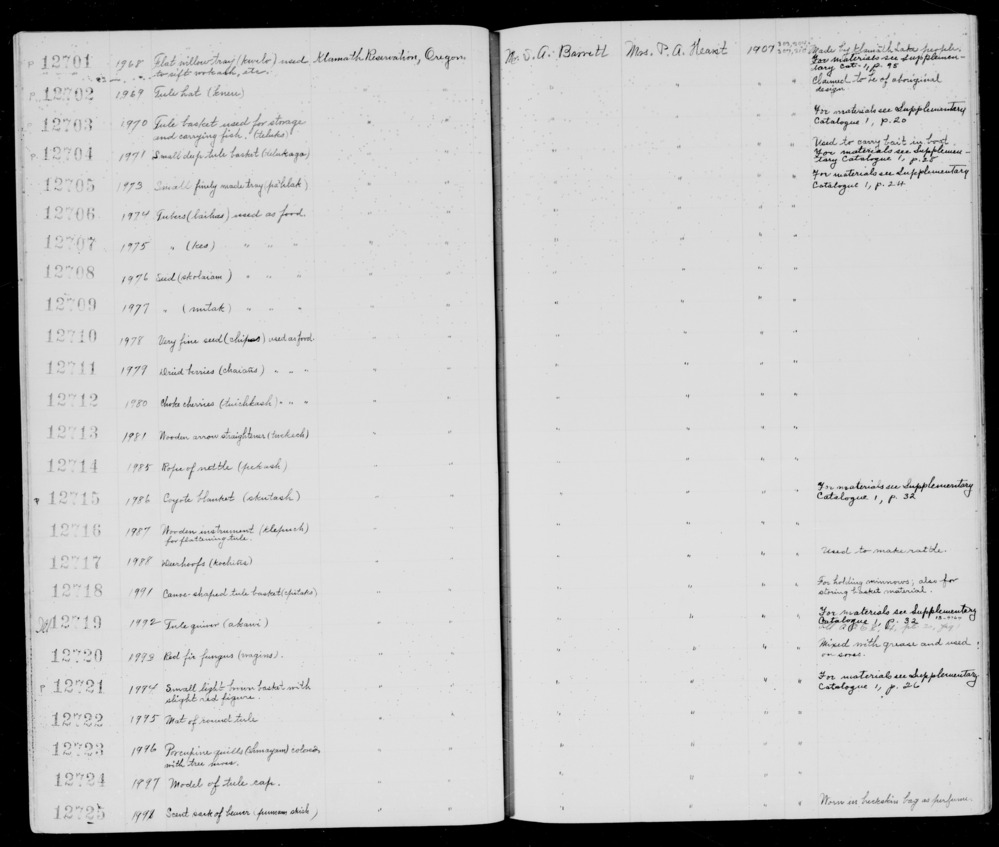 P 12701 1968 Flat willow tray (kwelo) used Klamath Reservation, Oregon. Mr. S. A. Barrett Mrs. P. A. Hearst 1907 Made by Klamath Lake people.
to sift wokash, etc. For materials see Supplemen-
tary Cat. 1, p. 95
P 12702 1969 Tule hat (kneu) " " " " " " Claimed to be of aboriginal
design.
12703 1970 Tule basket used for storage " " " " " " For materials see Supplementary
and carrying fish. (teluks) Catalogue 1, p. 20
P 12704 1971 Small deep tule basket (telukaga) " " " " " " Used to carry bait in boat.
For materials see Supplemen-
tary Catalogue 1, p. 28
12705 1973 Small finely made tray (pahlak) " " " " " " For materials see Supplementary
Catalogue 1, p. 24
12706 1974 Tubers used as food. " " " " " "
12707 1975 " (kes) " " " " " " " " "
12708 1976 Seed " " " " " " " " "
12709 1977 " (nutak) " " " " " " " " "
12710 1978 Very fine seed used as food. " " " " " "
12711 1979 Dried berries " " " " " " " " "
12712 1980 Choke cherries " " " " " " " " "
12713 1981 Wooden arrow straightener " " " " " "
12714 1985 Rope of nettle " " " " " "
P 12715 1986 Coyote blanket (skutash) " " " " " " For materials see Supplementary
Catalogue 1, p. 32
12716 1987 Wooden instrument " " " " " "
for flattening tule.
12717 1988 Deerhoofs " " " " " " Used to make rattle.
12718 1991 Canoe-shaped tule basket " " " " " " For holding minnows; also for
storing basket material.
12719 1992 Tule quiver " " " " " " For materials see Supplementary
Catalogue 1, p. 32
12720 1993 Red fir fungus " " " " " " Mixed with grease and used
on sores.
P 12721 1994 Small light brown basket with " " " " " " For materials see Supplementary
slight red figure Catalogue 1, p. 26
12722 1995 Mat of round tule " " " " " "
12723 1996 Porcupine quills colored " " " " " "
with tree moss.
12724 1997 Model of tule cap. " " " " " "
12725 1998 Scent sack of beaver " " " " " " Worn in buckskin bag as perfume.